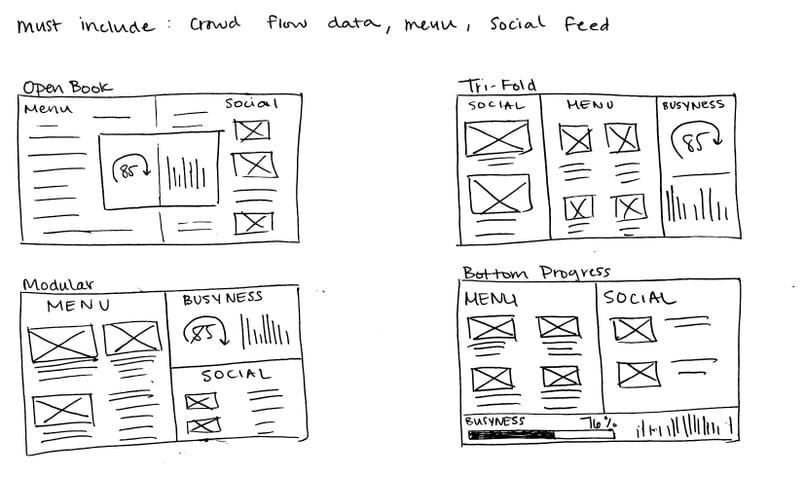 must include : crowd flow data, menu, social feed
Open Book
Menu
Social
85
Tri-Fold
SOCIAL
MENU
BUSYNESS
85
Modular
MENU
BUSYNESS
85
SOCIAL
Bottom Progress
MENU
SOCIAL
BUSYNESS
76%